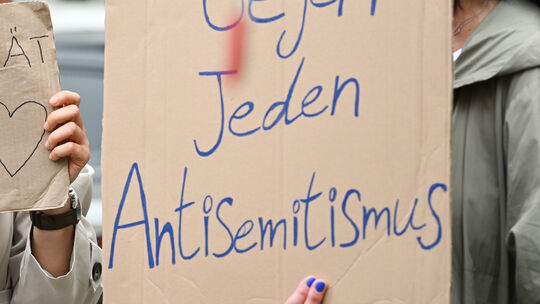 ÄT
Gegen
Jeden
Antisemitismus